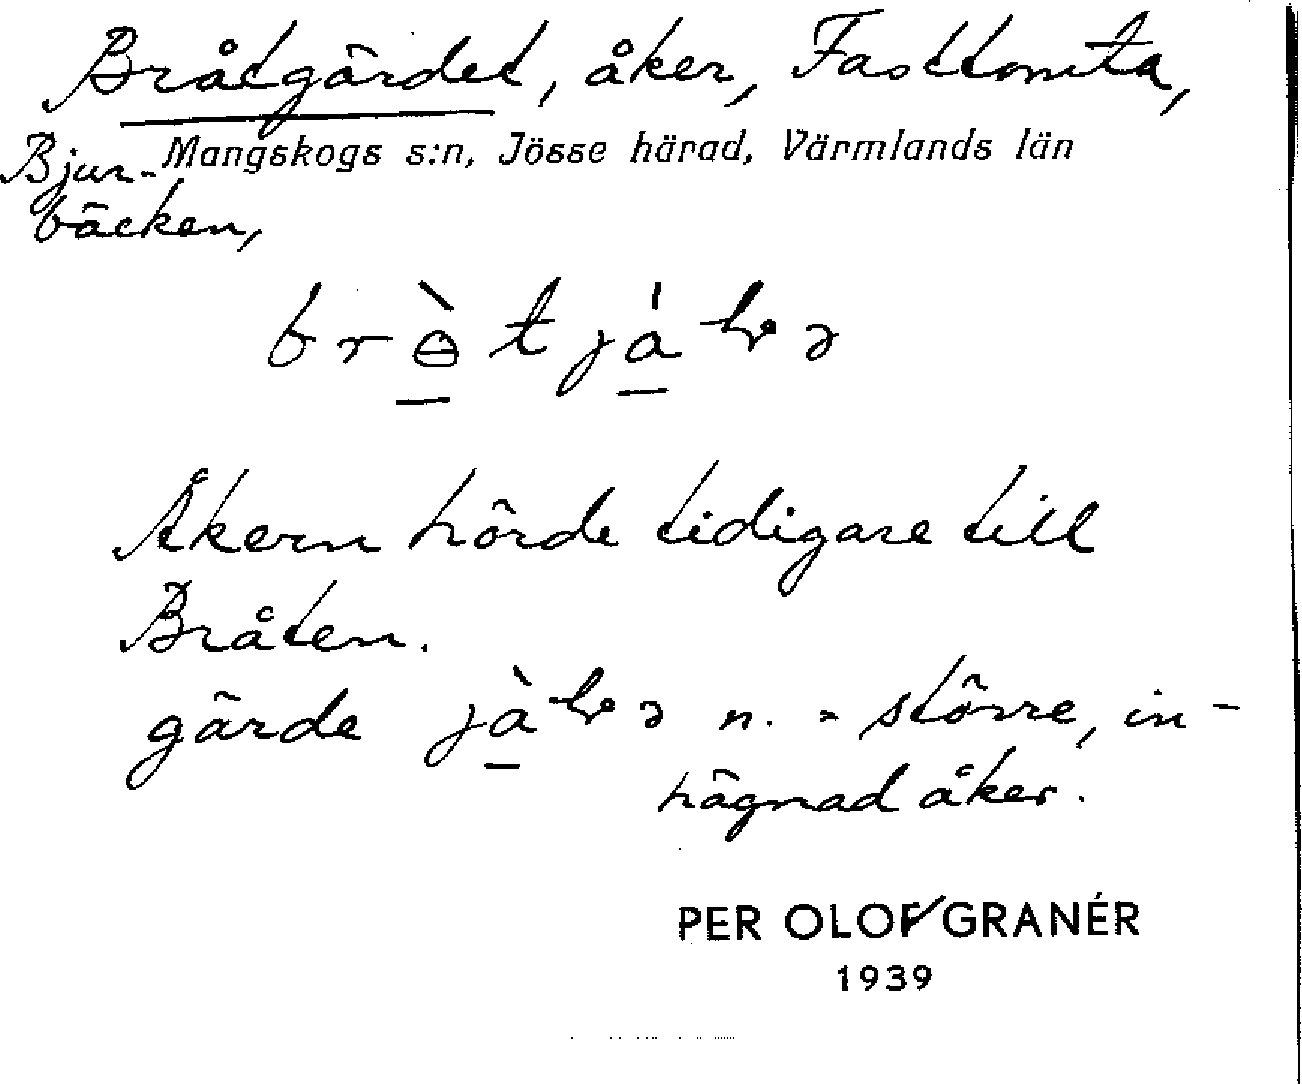 Bråtgärdet, åker, Fasttomta,
Mangskogs s:n, Jösse härad, Värmlands län
Bjur-
bäcken,
Åkern hörde tidigare till
Bråten.
gärde n. = större, in-
hägnad åker.
PER OLOF GRANÉR
1939